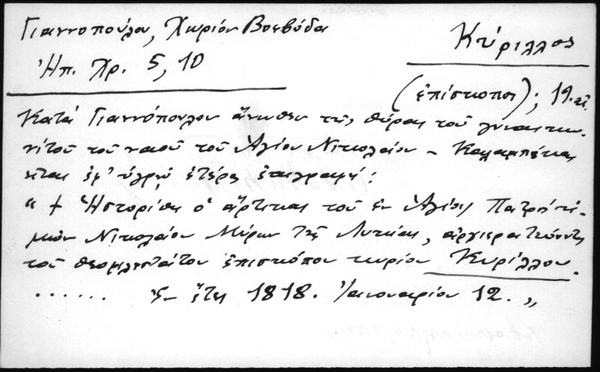 Γιαννοπούλου, Χωρίον Βοεβόδα
Κύριλλος
Ἠπ. Χρ. 5, 10
(ἐπίσκοποι); 19.αἰ.
Κατά Γιαννόπουλον ἄνωθεν τῆς θύρας τοῦ γυναικω-
νίτου τοῦ ναοῦ τοῦ Ἁγίου Νικολάου – Καλαμπάκας
κεῖται ἐφ' ὑγρῷ ἑτέρα ἐπιγραφή:
" + Ἠστορίθη ὁ νάρτικας τοῦ ἐν Ἁγίοις Πατρός ἡ-
μῶν Νικολάου Μύρων τῆς Λυκίας, ἀρχιερατεύοντος
τοῦ θεοφιλεστάτου ἐπισκόπου κυρίου Κυρίλλου.
...... ἔτει 1818. Ἰανουαρίου 12. "